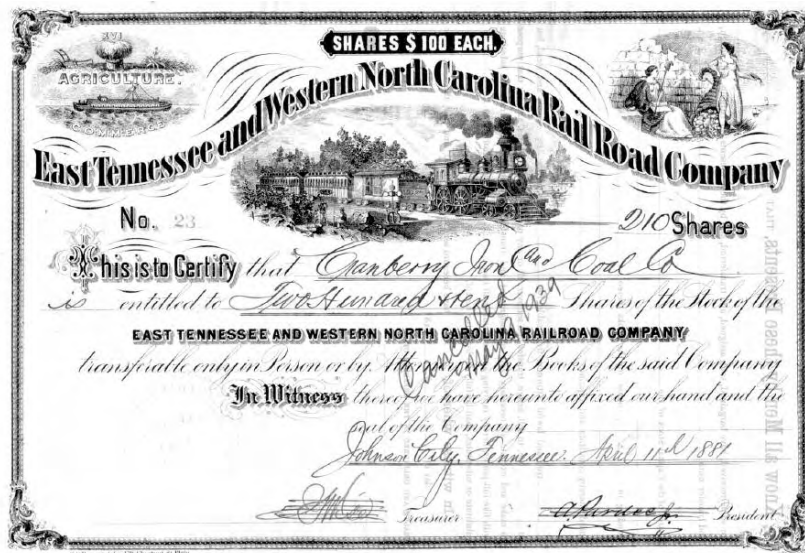 SHARES $ 100 EACH.
AGRICULTURE.
COMMERCE
East Tennessee and Western North Carolina Rail Road Company
No. 23
210 Shares
This is to Certify that Cranberry Iron and Coal Co
is entitled to Two Hundred & ten Shares of the Stock of the
EAST TENNESSEE AND WESTERN NORTH CAROLINA RAILROAD COMPANY
transferable only in Person or by Attorney on the Books of the said Company
Cancelled
May 1939
In Witness thereof we have hereunto affixed our hand and the
Seal of the Company
Johnson City, Tennessee. April 11th 1881
Treasurer
A. Pardee Jr. President
Know all Men by these Presents, THAT